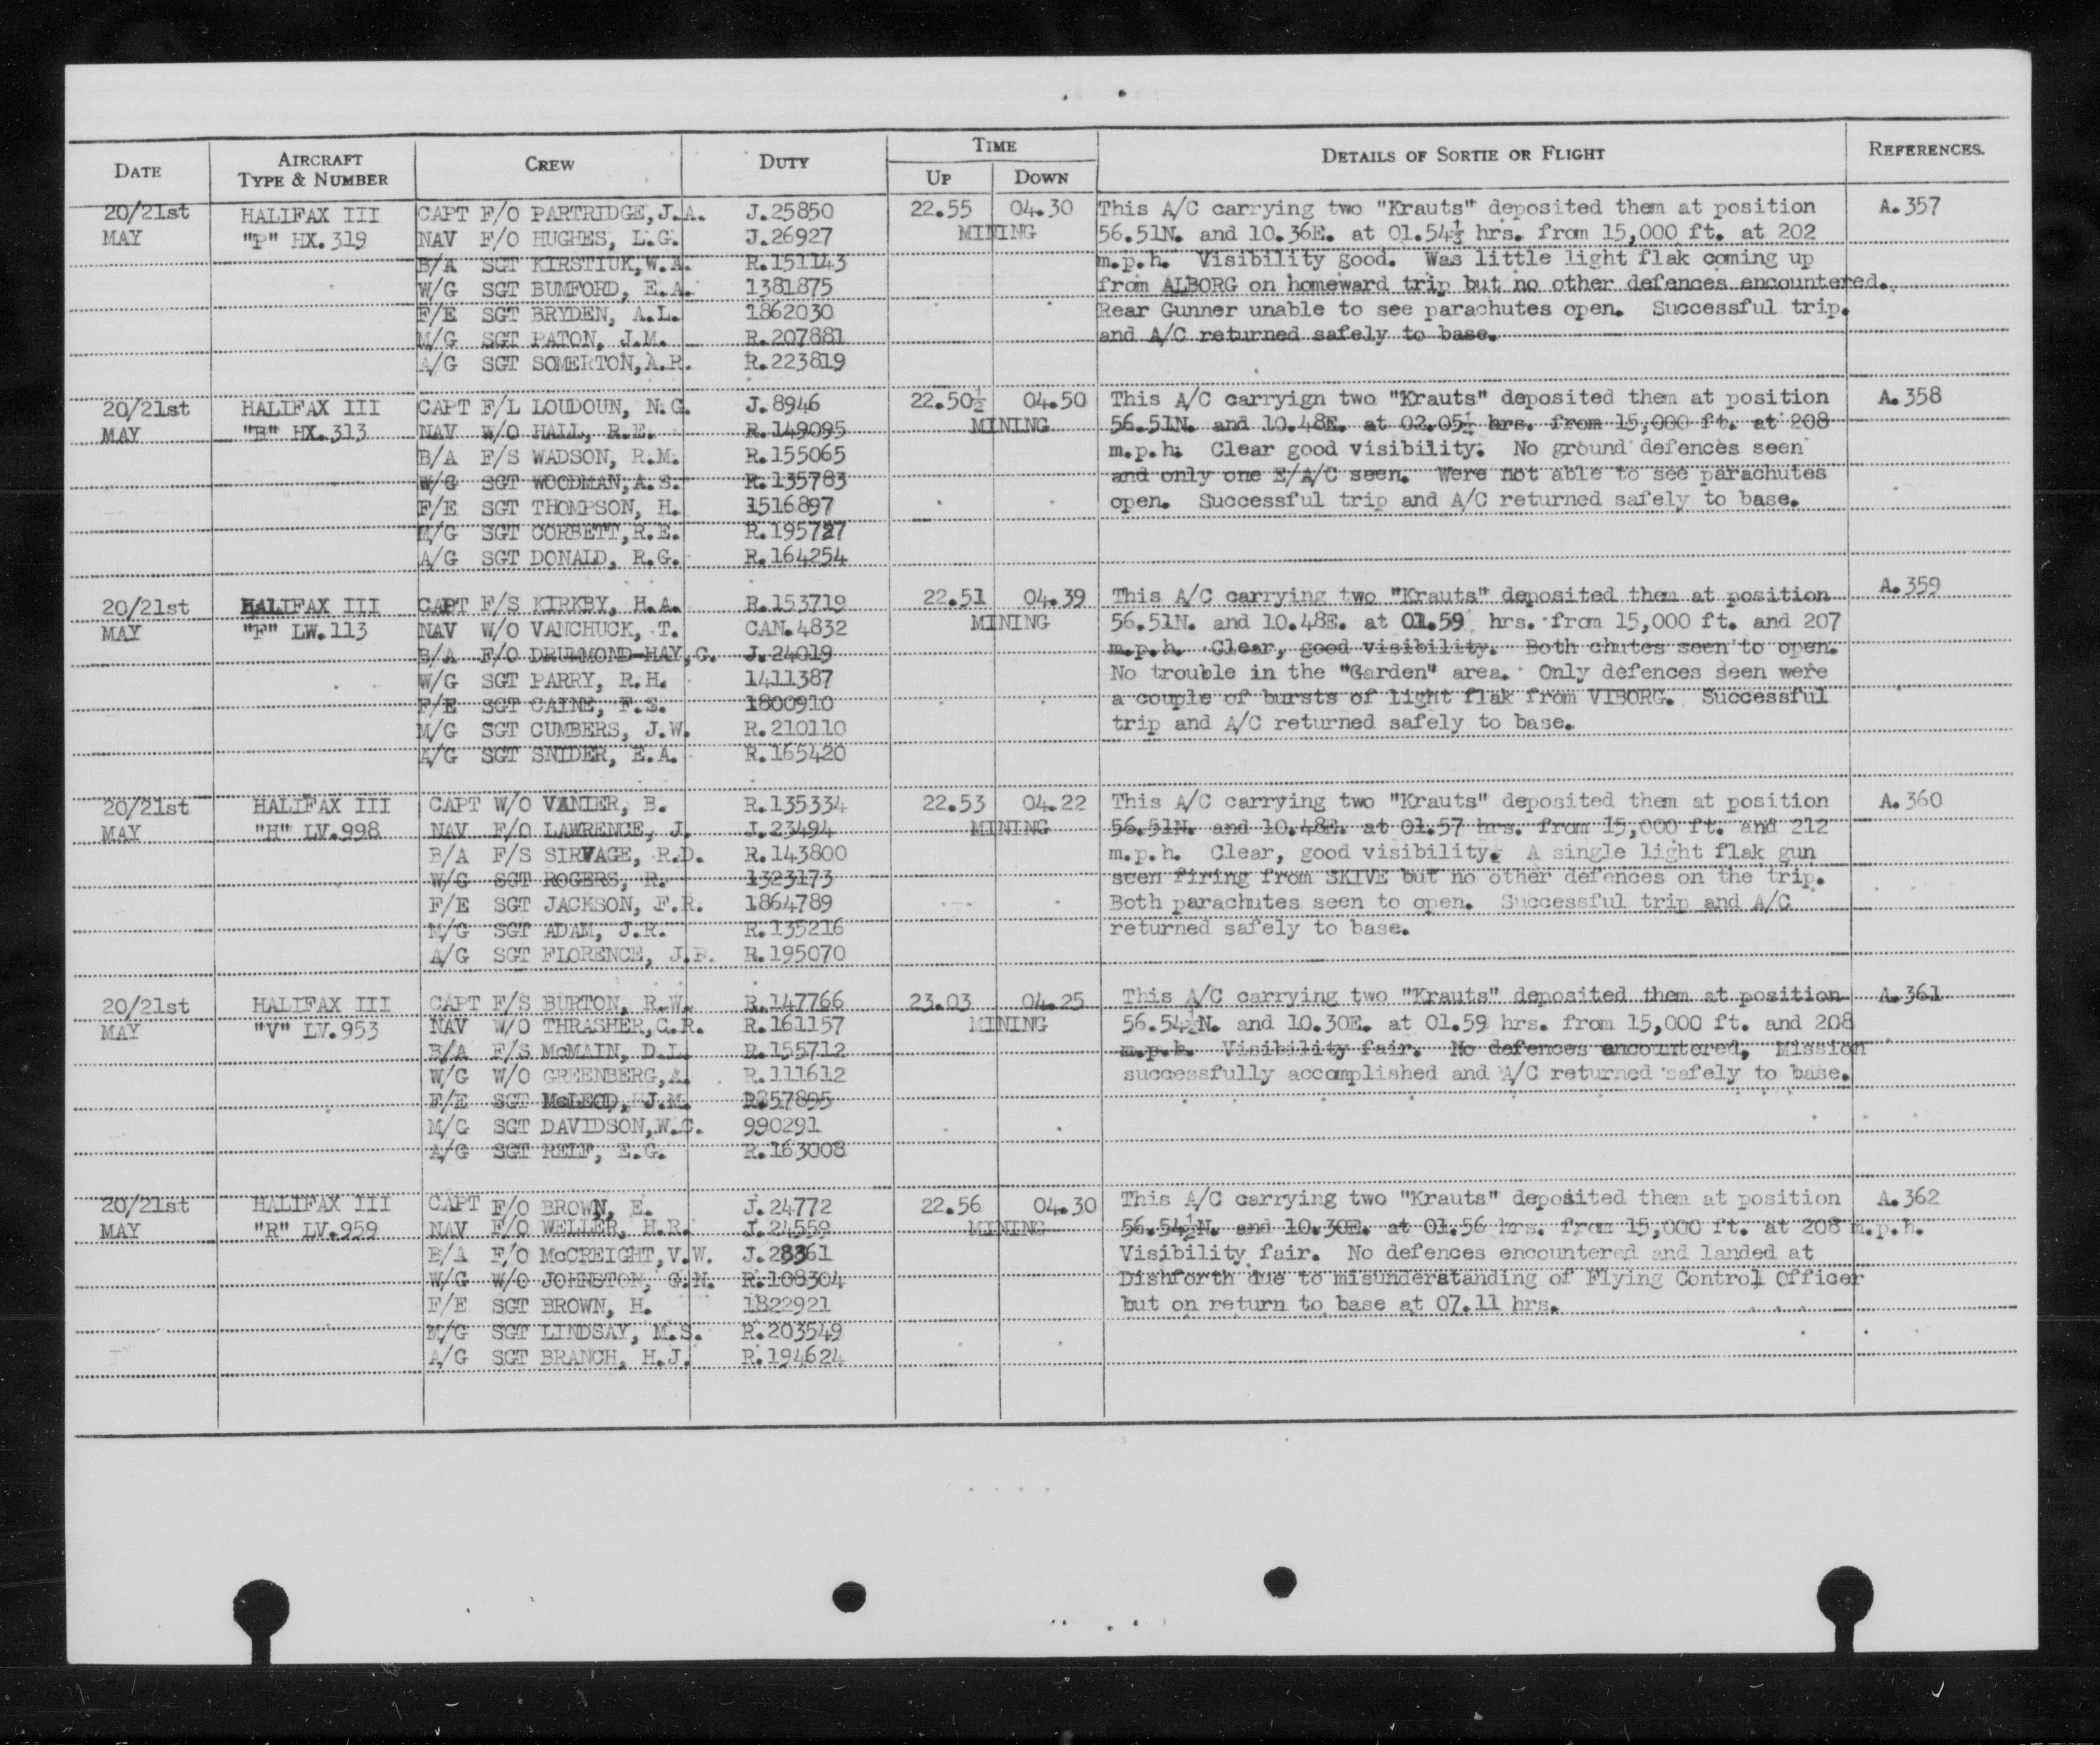 DATE AIRCRAFT TYPE & NUMBER CREW DUTY TIME UP DOWN DETAILS OF SORTIE OR FLIGHT REFERENCES.
20/21st HALIFAX III CAPT F/O PARTRIDGE,J.A. J.25850 22.55 04.30 This A/C carrying two "Krauts" deposited them at position A.357
MAY "P" HX.319 NAV F/O HUGHES, L.G. J.26927 MINING 56.51N. and 10.36E. at 01.54½ hrs. from 15,000 ft. at 202
B/A SGT KIRSTIUK,W.A. R.151143 m.p.h. Visibility good. Was little light flak coming up
W/G SGT BUMFORD, E.A. 1381875 from ALBORG on homeward trip but no other defences encountered.
F/E SGT BRYDEN, A.L. 1862030 Rear Gunner unable to see parachutes open. Successful trip.
M/G SGT PATON, J.M. R.207881 and A/C returned safely to base.
A/G SGT SOMERTON,A.R. R.223819
20/21st HALIFAX III CAPT F/L LOUDOUN, N.G. J.8946 22.50½ 04.50 This A/C carryign two "Krauts" deposited them at position A.358
MAY "B" HX.313 NAV W/O HALL, R.E. R.149095 MINING 56.51N. and 10.48E. at 02.05½ hrs. from 15,000 ft. at 208
B/A F/S WADSON, R.M. R.155065 m.p.h. Clear good visibility. No ground defences seen
W/G SGT WOODMAN,A.S. R.135783 and only one E/A/C seen. Were not able to see parachutes
F/E SGT THOMPSON, H. 1516897 open. Successful trip and A/C returned safely to base.
M/G SGT CORBETT,R.E. R.195727
A/G SGT DONALD, R.G. R.164254
20/21st HALIFAX III CAPT F/S KIRKBY, H.A. R.153719 22.51 04.39 This A/C carrying two "Krauts" deposited them at position A.359
MAY "F" LW.113 NAV W/O VANCHUCK, T. CAN.4832 MINING 56.51N. and 10.48E. at 01.59 hrs. from 15,000 ft. and 207
B/A F/O DRUMMOND-HAY,G. J.24019 m.p.h. Clear, good visibility. Both chutes seen to open.
W/G SGT PARRY, R.H. 1411387 No trouble in the "Garden" area. Only defences seen were
F/E SGT CAINE, F.S. 1800910 a couple of bursts of light flak from VIBORG. Successful
M/G SGT CUMBERS, J.W. R.210110 trip and A/C returned safely to base.
A/G SGT SNIDER, E.A. R.165420
20/21st HALIFAX III CAPT W/O VANIER, B. R.135334 22.53 04.22 This A/C carrying two "Krauts" deposited them at position A.360
MAY "H" LV.998 NAV F/O LAWRENCE, J. J.23494 MINING 56.51N. and 10.48E. at 01.57 hrs. from 15,000 ft. and 212
B/A F/S SIRVAGE, R.D. R.143800 m.p.h. Clear, good visibility. A single light flak gun
W/G SGT ROGERS, R. 1323173 seen firing from SKIVE but no other defences on the trip.
F/E SGT JACKSON, F.R. 1864789 Both parachutes seen to open. Successful trip and A/C
M/G SGT ADAM, J.R. R.135216 returned safely to base.
A/G SGT FLORENCE, R.195070
20/21st HALIFAX III CAPT F/S BURTON, R.W. R.147766 23.03 04.25 This A/C carrying two "Krauts" deposited them at position A.361
MAY "V" LV.953 NAV W/O THRASHER,C.R. R.161157 MINING 56.54½N. and 10.30E. at 01.59 hrs. from 15,000 ft. and 208
B/A F/S McMAIN, D.L. R.155712 m.p.h. Visibility fair. No defences encountered, Mission
W/G W/O GREENBERG,A. R.111612 successfully accomplished and A/C returned safely to base.
F/E SGT McLEOD, J.M.
M/G SGT DAVIDSON,W.C. 990291
A/G SGT RELF, E.G. R.163008
20/21st HALIFAX III CAPT F/O BROWN, E. J.24772 22.56 04.30 This A/C carrying two "Krauts" deposited them at position A.362
MAY "R" LV.959 NAV F/O WELLER, H.R. J.24559 MINING 56.54½N. and 10.30E. at 01.56 hrs. from 15,000 ft. at 208 m.p.h.
B/A F/O McCREIGHT,V.W. J.28361 Visibility fair. No defences encountered and landed at
W/G W/O JOHNSTON, G.N. R.108304 Dishforth due to misunderstanding of Flying Control Officer
F/E SGT BROWN, H. 1822921 but on return to base at 07.11 hrs.
M/G SGT LINDSAY, M.S. R.203549
A/G SGT BRANCH, H.J. R.194624